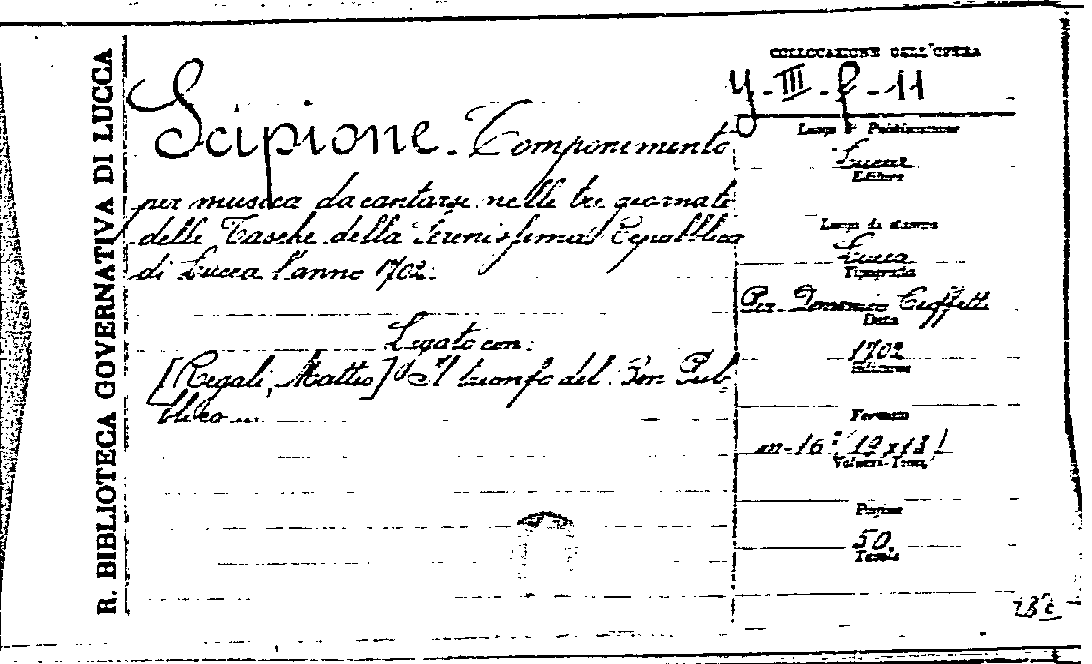 R. BIBLIOTECA GOVERNATIVA DI LUCCA
Scipione. Componimento
per musica da cantarsi nelle tre giornate
delle Tasche della Serenissima Repubblica
di Lucca l'anno 1702.
Legato con:
[Regali, Matteo] Il trionfo del Bon Pub-
blico ...
COLLOCAZIONE DELL'OPERA
Y-III-f-11
Luogo di Pubblicazione
Lucca
Editore
Luogo di stampa
Lucca
Tipografia
Per Domenico
Data
1702
Edizione
Formato
in-16: (19x13)
Pagine
50